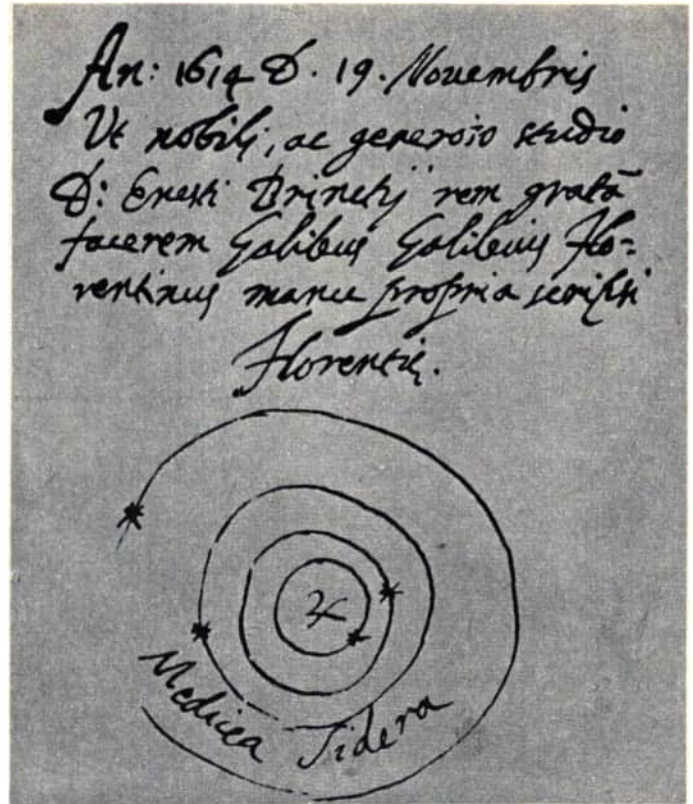 An: 1614 D. 19. Nouembris
Vt nobili, ac generoso studio
D: Ernesti Brinckij rem gratā
facerem Galileus Galileius Flo-
rentinus manu propria scripsi
Florentię.
♃
Medicea Sidera